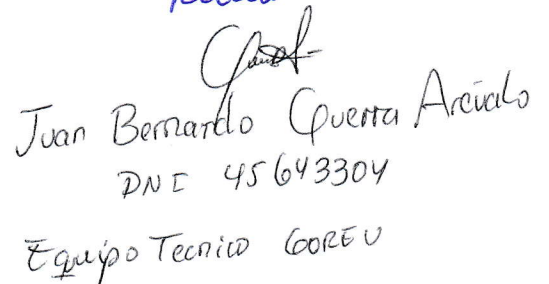 Juan Bernardo Guerra Arévalo
DNI 45643304
Equipo Tecnico GOREU